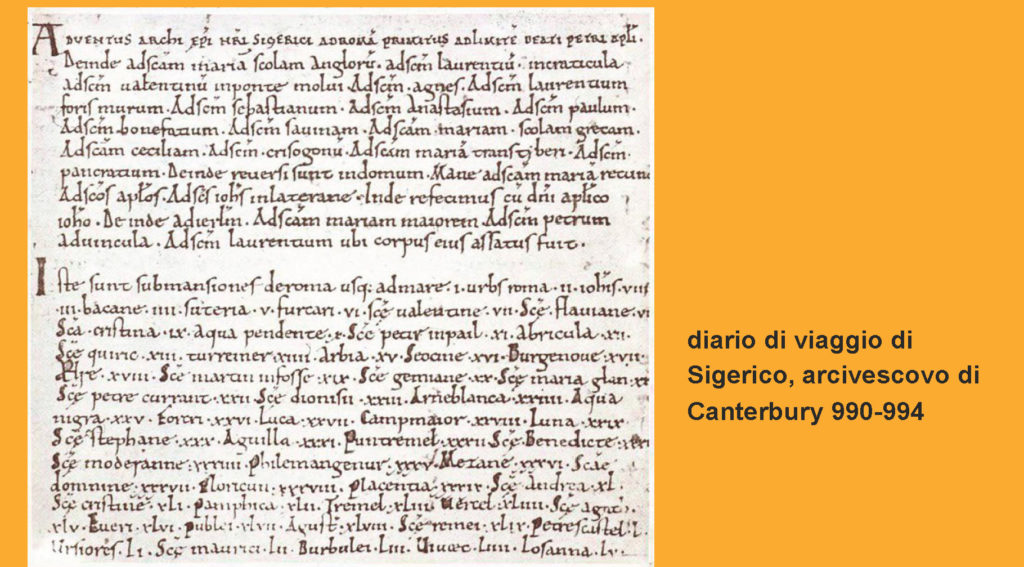 ADVENTUS ARCHI EPI NRI SIGERICI ADROMĀ PRIMITUS ADLIMITĒ BEATI PETRI APLI.
Deinde adscām mariā scolam Anglorū. adscm laurentiū. incraticula
adscm ualentinū inponte molui. Adscm. agnes. Adscm laurentium
foris murum. Adscm sebastianum. Adscm Anastasium. Adscm paulum.
Adscm bonefatium. Adscm sauinam. Adscām mariam. scolam grecam.
Adscām ceciliam. Adscm. crisogonū. Adscām mariā transtyberi. Adscm
pancratium. Deinde reuersi sunt indomum. Mane adscām mariā
Adscos aplos. Adscs iohs inlaterane. Inde refecimus cū dni aplico
ioho. Deinde adierlm. Adscām mariam maiorem Adscm petrum
aduincula. Adscm laurentium ubi corpus eius assatus fuit.
Iste sunt submansiones deroma usq; admare. i. urbs roma. ii. iohis. viiii
iii. bacane. iiii. suteria. v. furcari. vi. sce ualentine. vii. Sce. flauiane. vi
Sca cristina. ix. Aqua pendente. x. Sce petir inpail. xi. Abricula. xii.
Sce quiric. xiii. turreiner. xiiii. Arbia. xv. Seocine. xvi. Burgenoue. xvii.
xviii. Sce martin infosse. xix. Sce gemiane. xx. Sce maria glan. xx
Sce petre currant. xxii. Sce dionisii. xxiii. Arneblanca. xxiiii. Aqua
nigra. xxv. Forcri. xxvi. Luca. xxvii. Campmaior. xxviii. Luna. xxix
Sce stephane. xxx. Aguilla. xxxi. Puntremel. xxxii. Sce Benedicte.
Sce moderanne. xxxiiii. Philemangenur. xxxv. Metane. xxxvi. Scae
domnine. xxxvii. Floricun. xxxviii. Placentia. xxxix. Sce Andrea. xl.
Sce cristine. xli. Pamphica. xlii. Tremel. xliii. Uercel. xliiii. Sce agath.
xlv. Eueri. xlvi. Publei. xlvii. Agust. xlviii. Sce remei. xlix. Petrescastel. l.
Ursiores. li. Sce maurici. lii. Burbulei. liii. Uiuaec. liiii. Losanna. lv.
diario di viaggio di
Sigerico, arcivescovo di
Canterbury 990-994